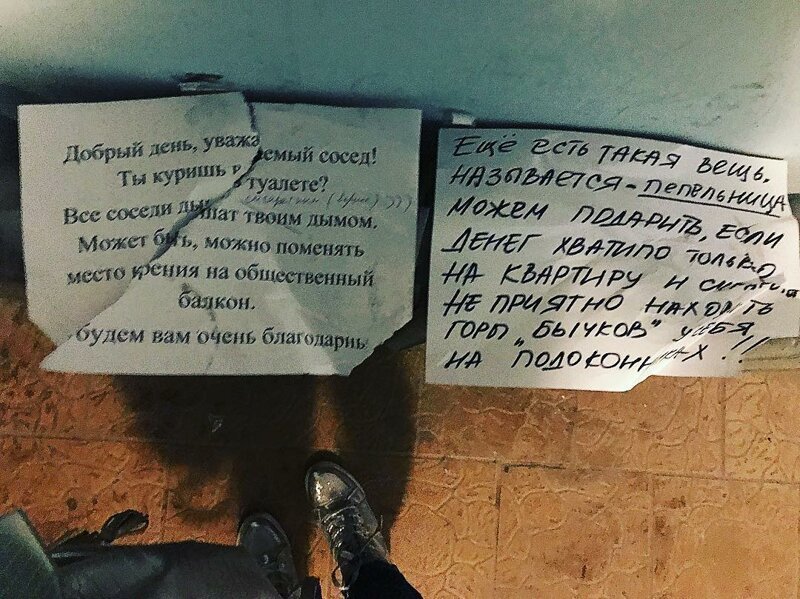 Добрый день, уважаемый сосед!
Ты куришь в туалете?
Все соседи дышат твоим дымом.
Может быть, можно поменять
место курения на общественный
балкон.
будем вам очень благодарны
Ещё есть такая вещь.
НАЗЫВАЕТСЯ - ПЕПЕЛЬНИЦА
МОЖЕМ ПОДАРИТЬ, ЕСЛИ
ДЕНЕГ ХВАТИЛО ТОЛЬКО
НА КВАРТИРУ И
НЕ ПРИЯТНО НАХОДИТЬ
ГОРЫ „БЫЧКОВ" У СЕБЯ
НА ПОДОКОННИКАХ!!